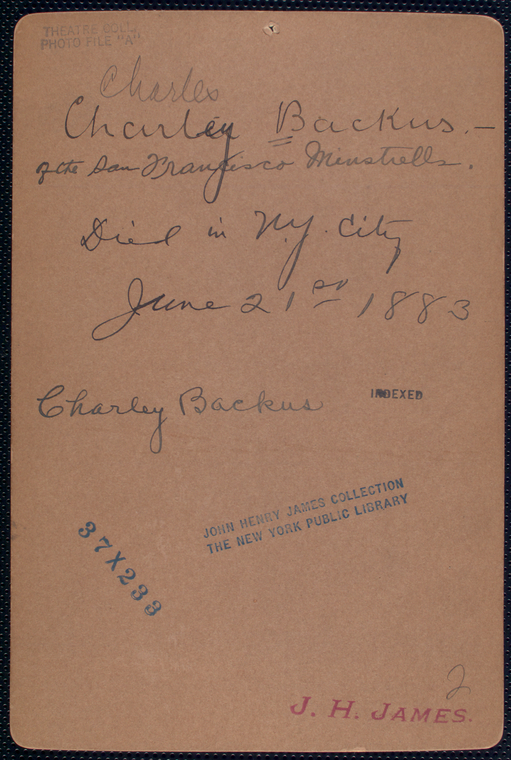 THEATRE COLL.
PHOTO FILE "A"
Charles
Charley Backus.—
of the San Francisco Minstrells.
Died in N.Y. City
June 21st 1883
Charley Backus
INDEXED
JOHN HENRY JAMES COLLECTION
THE NEW YORK PUBLIC LIBRARY
37X233
2
J. H. JAMES.